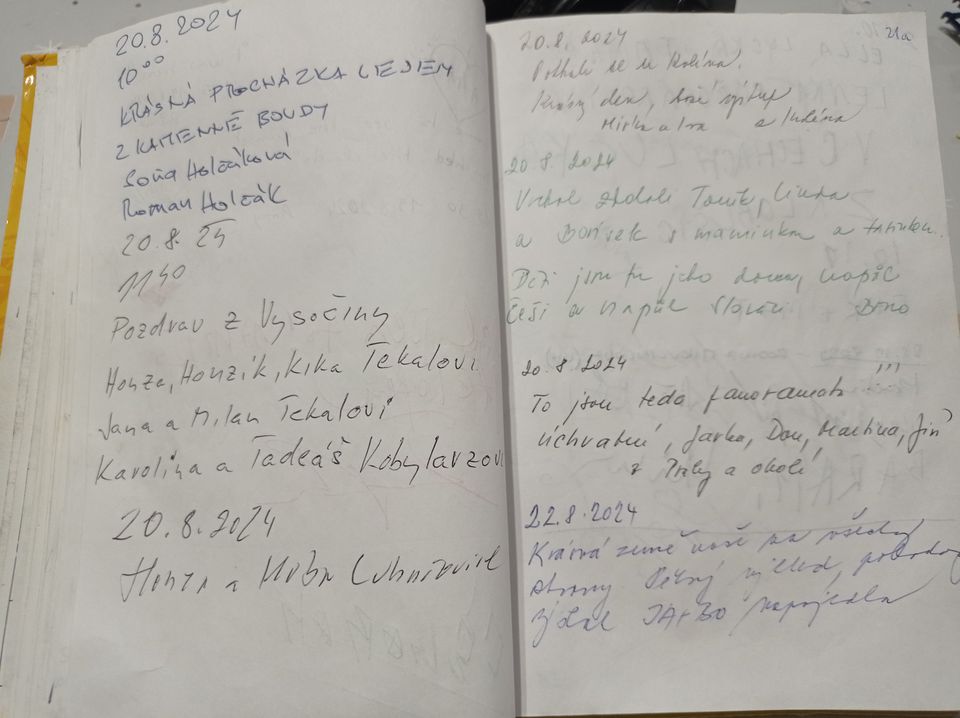 20.8.2024
10⁰⁰
KRÁSNÁ PROCHÁZKA LESEM
Z KAMENNÉ BOUDY
Soňa Holčáková
Roman Holčák
20.8. 24
11⁴⁰
Pozdrav z Vysočiny
Honza, Honzík, Kika Tekalovi
Jana a Milan Tekalovi
Karolina a Tadeáš Kobylarzovi
20.8.2024
Honza a
20.8.2024
se u Kolína.
Krásný den,
Mirka a Iva z
20.8.2024
Vrchol zdolali Toník, Linda
a Bořísek s maminkou a tatínkem.
Děti jsou tu jako doma, napůl
Češi a napůl Slováci. Brno
20.8.2024
To jsou teda panoramata !!!
Úchvatné, Jarka, Dan, Martina, Jiří
z Prahy a okolí
22.8.2024
Krásná země naše na všechny
strany Pěkný výhled,